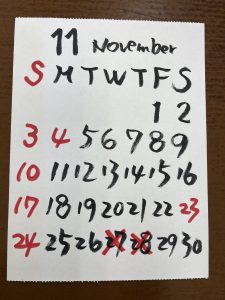 11 November
S M T W T F S
1 2
3 4 5 6 7 8 9
10 11 12 13 14 15 16
17 18 19 20 21 22 23
24 25 26 27 28 29 30